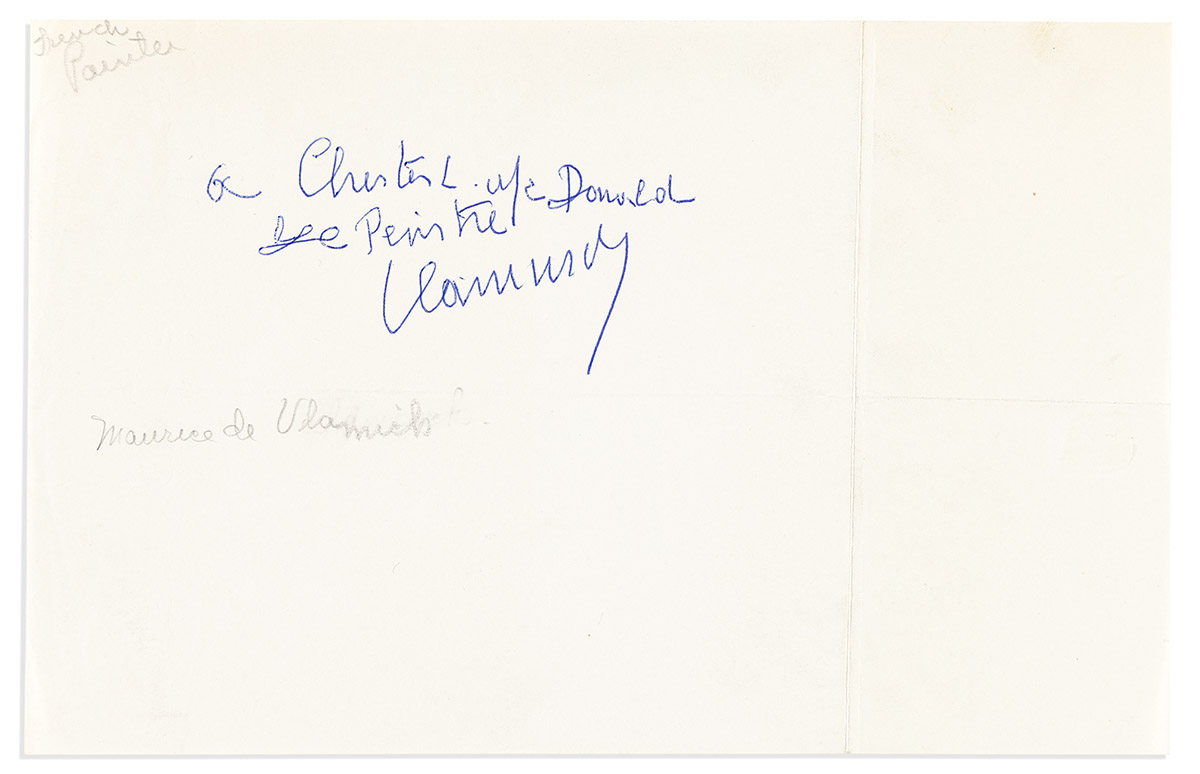 French
Painter
a Chester L. Mc Donald
Peintre
Vlaminck
Maurice de Vlaminck